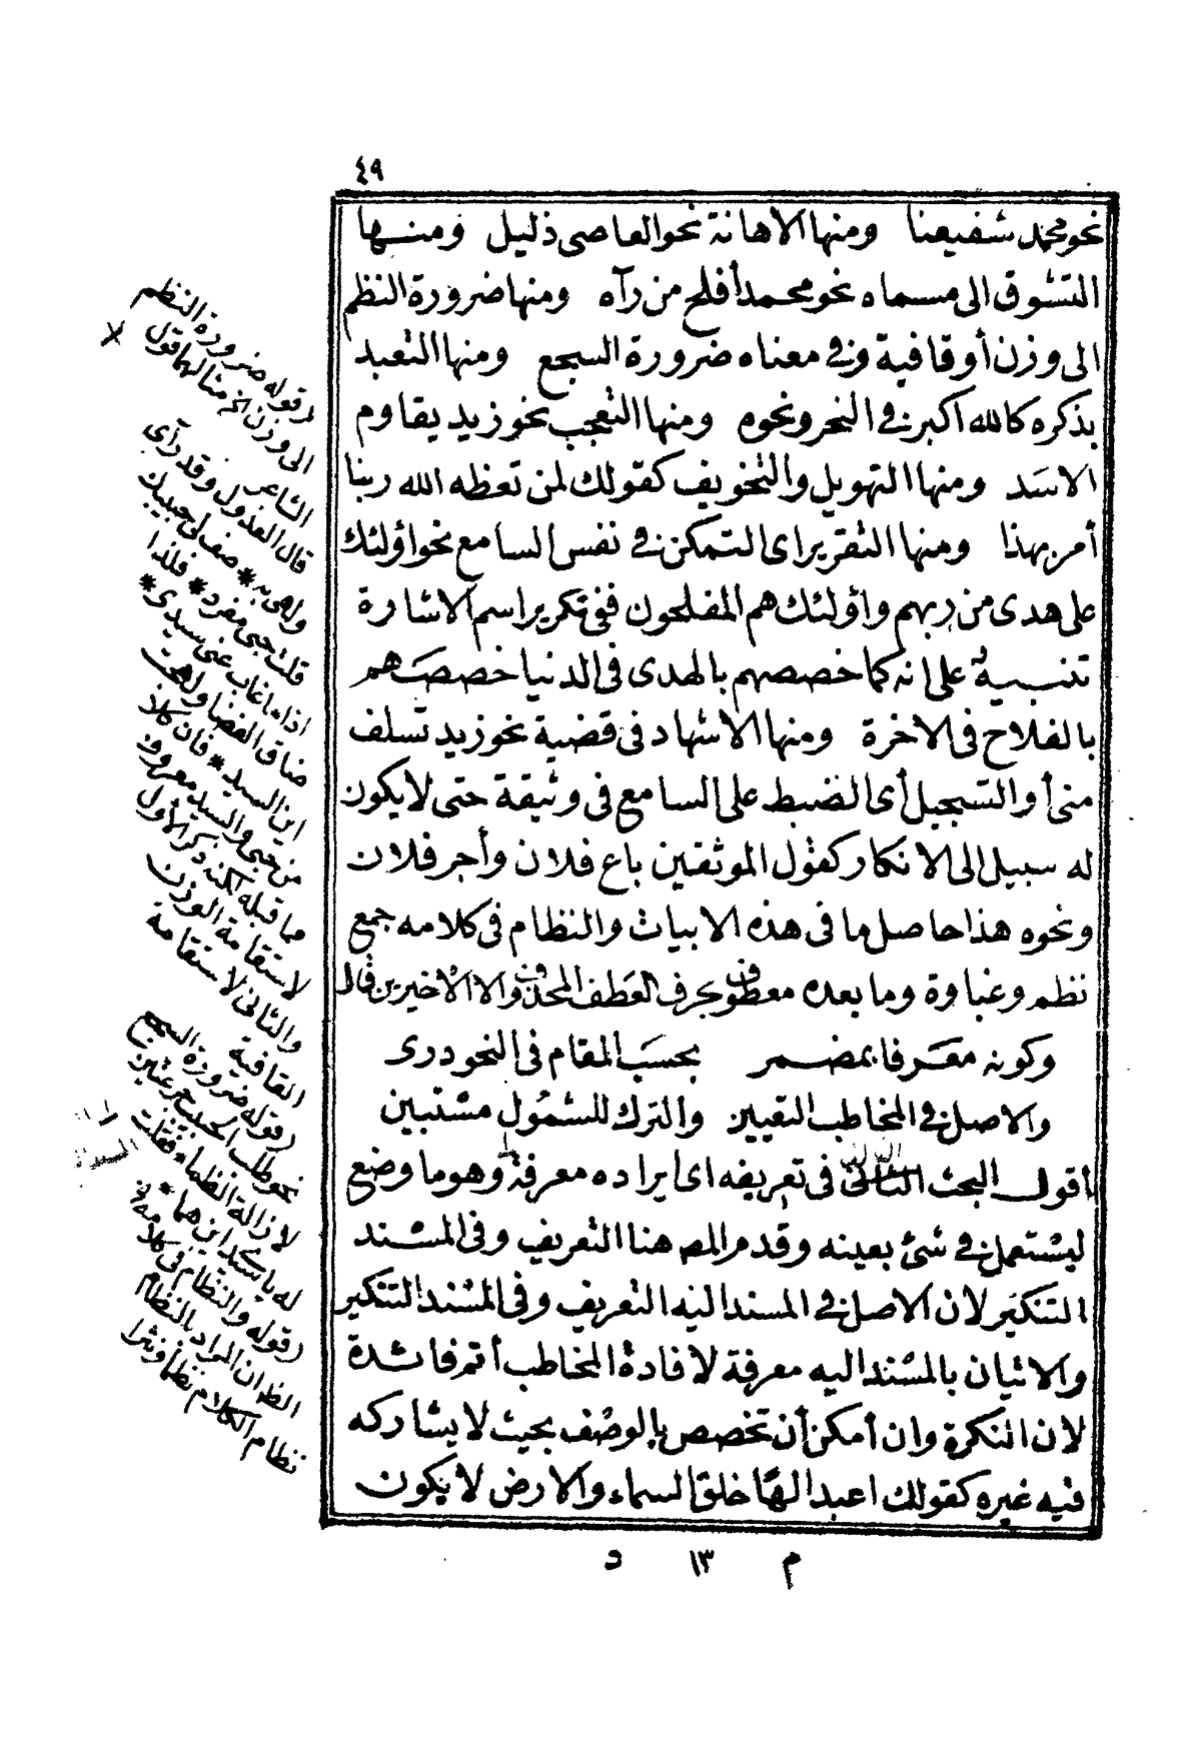 ٤٩
نحو محمد شفيعنا ومنها الاهانة نحو العاصى ذليل ومنها
التشوق الى مسماه نحو محمد أفلح من رآه ومنها ضرورة النظم
الى وزن أو قافية وفى معناه ضرورة السجع ومنها التعبد
بذكره كالله اكبر فى النحر ونحوه ومنها التعجب نحو زيد يقاوم
الاسد ومنها التهويل والتخويف كقولك لمن تعظه الله ربنا
أمر بهذا ومنها التقرير اى التمكن فى نفس السامع نحو اؤلئك
على هدى من ربهم واؤلئك هم المفلحون ففى تكرير اسم الاشارة
تنبيه على انه كما خصصهم بالهدى فى الدنيا خصصهم
بالفلاح فى الاخرة ومنها الاشهاد فى قضية نحو زيد تسلف
منى أو التسجيل أى الضبط على السامع فى وثيقة حتى لا يكون
له سبيل الى الانكار كقول الموثقين باع فلان وأجر فلان
ونحوه هذا حاصل ما فى هذه الابيات والنظام فى كلامه جمع
نظم وغباوة وما بعده معطوف بحرف العطف المحذوف والا الاخيرين قال
وكونه معرفا بمضمر بحسب المقام فى النحو درى
والاصل فى المخاطب التعيين والترك للشمول مستبين
أقول البحث الثالث فى تعريفه اى ايراده معرفة وهو ما وضع
ليستعمل فى شئ بعينه وقدم المص هنا التعريف وفى المسند
التنكير لان الاصل فى المسند اليه التعريف وفى المسند التنكير
والاتيان بالمسند اليه معرفة لافادة المخاطب أتم فائدة
لان النكرة وان أمكن أن تخصص بالوصف بحيث لا يشاركه
فيه غيره كقولك اعبد الها خلق السماء والارض لا يكون
م ١٣ د
(قوله ضرورة النظم
الى وزن الخ مثالهما قول
الشاعر
قال العذول وقد رآى
ولهى به * صف لى حبيبك
قلت حبى مفرد * فلذا
اذا ما غاب عنى سيدى *
ضاق الفضا ولهجت
اين السيد * فان كلا
من حبى والسيد معروف
مما قبله لكنه ذكر الأول
لاستقامة الوزن
والثانى لاستقامة
القافية
(قوله ضرورة السجع
نحو طلب الحبيب
لازالة الظما * فقلت
له يا سيد اين هما *
(قوله والنظام فى كلامه
الظ ان المراد بالنظام
نظام الكلام نظما ونثرا